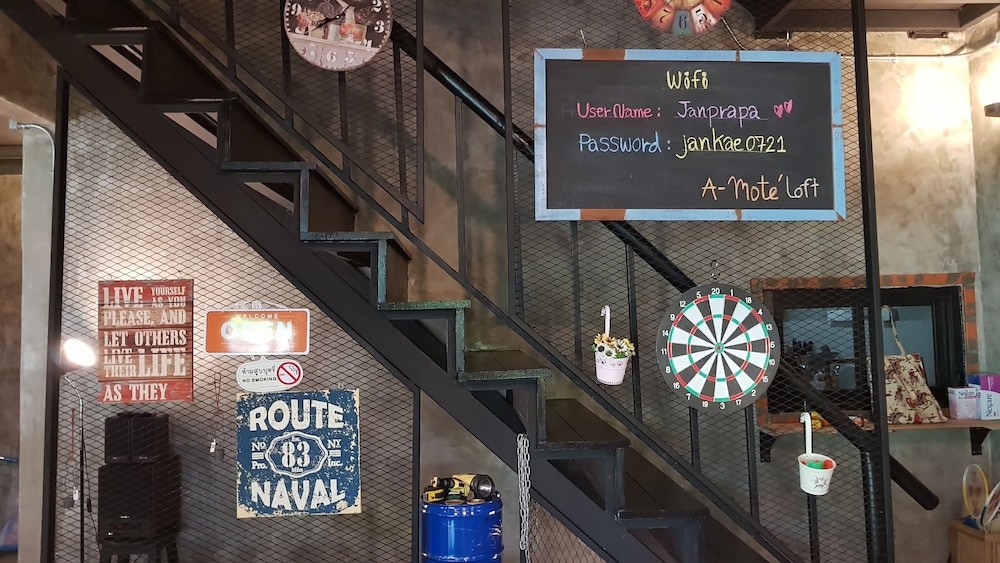 Wifi
UserName: Janprapa
Password: jankae0721
A-Moté Loft
LIVE YOURSELF
AS YOU
PLEASE, AND
LET OTHERS
LIVE
THEIR LIFE
AS THEY
WELCOME
OPEN
ห้ามสูบบุหรี่
NO SMOKING
ROUTE
No 83 NY
Pro. Inc.
NAVAL
20 1 18 4 13 6 10 15 2 17 3 19 7 16 8 11 14 9 12 5